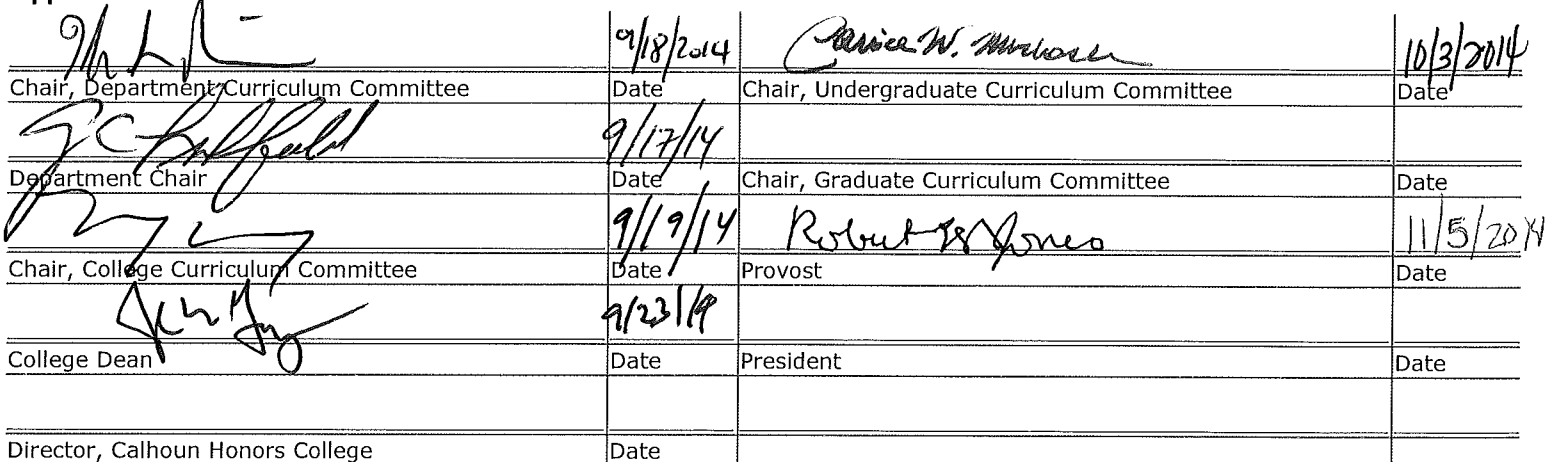 9/18/2014 10/3/2014
Chair, Department Curriculum Committee Date Chair, Undergraduate Curriculum Committee Date
9/17/14
Department Chair Date Chair, Graduate Curriculum Committee Date
9/19/14 Robert Jones 11/5/2014
Chair, College Curriculum Committee Date Provost Date
9/23/14
College Dean Date President Date
Director, Calhoun Honors College Date